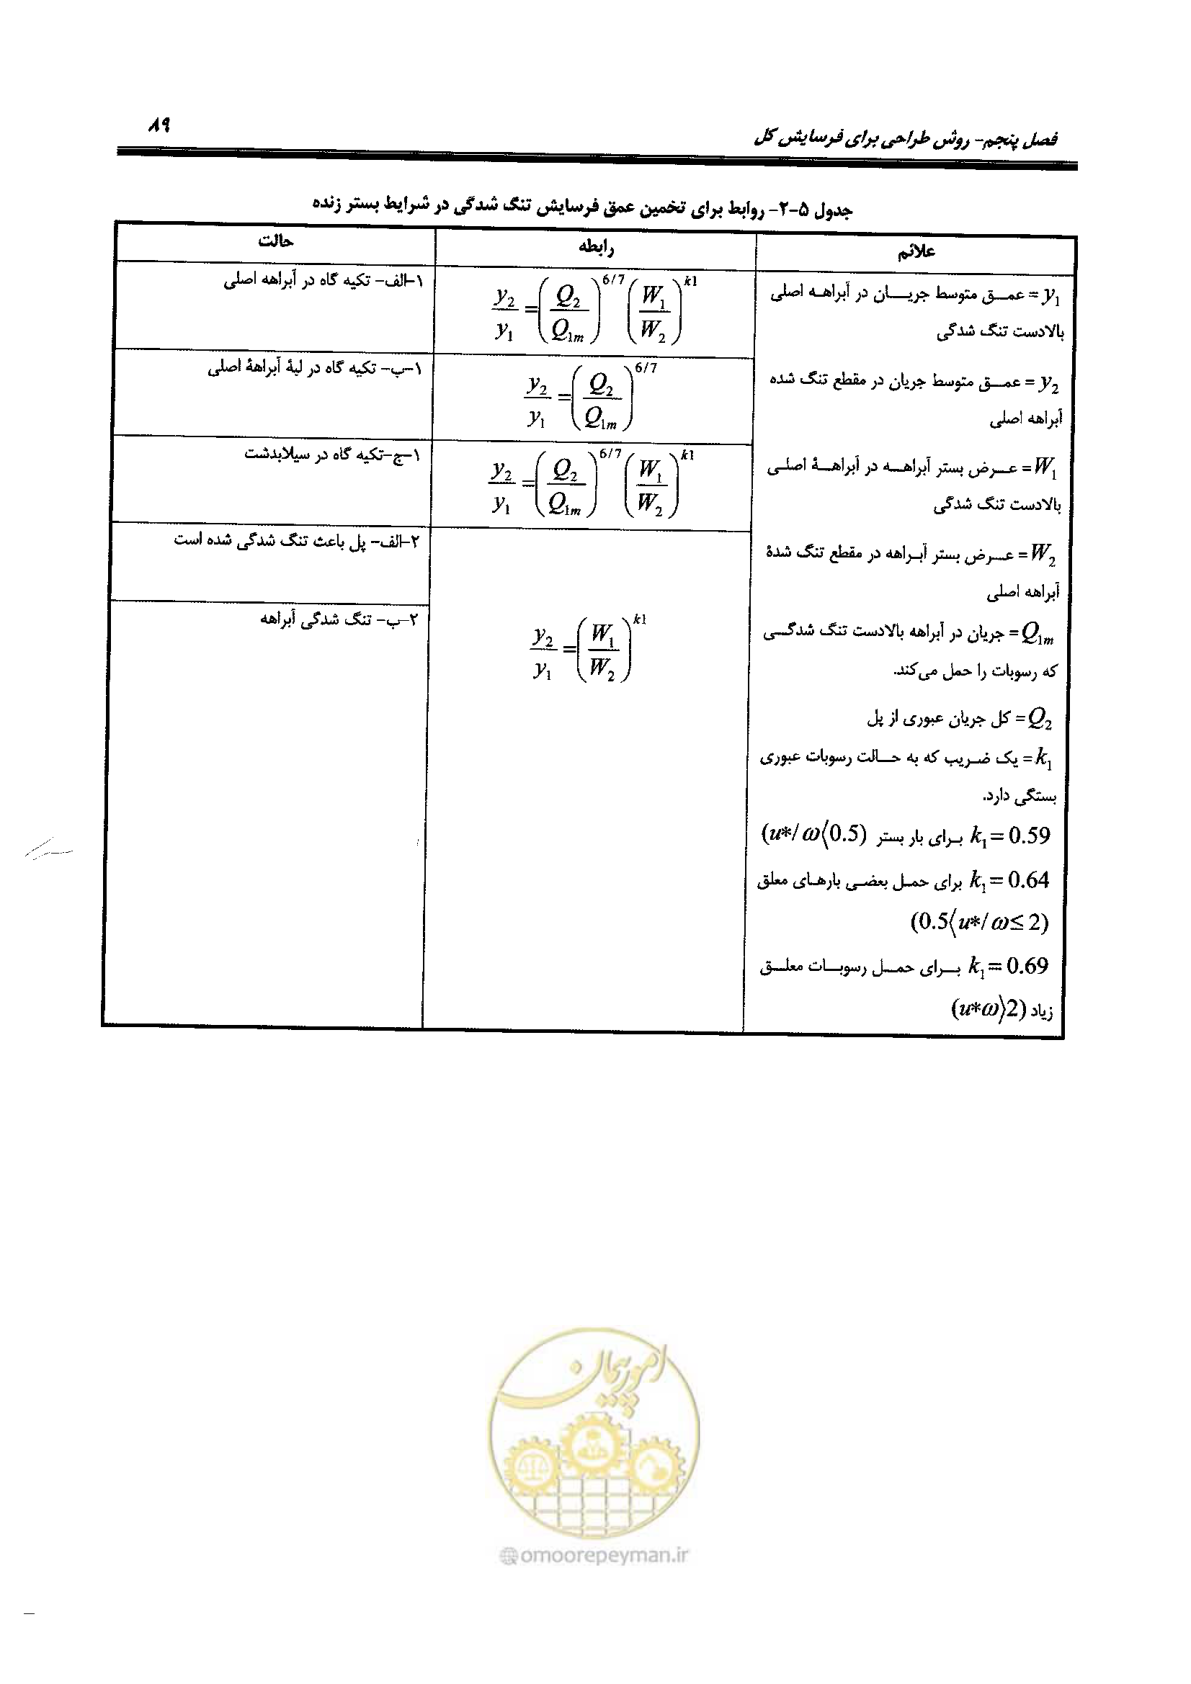 فصل پنجم- روش طراحی برای فرسایش کل
۸۹
جدول ۵-۲- روابط برای تخمین عمق فرسایش تنگ شدگی در شرایط بستر زنده
علائم
رابطه
حالت
y₁ = عمـق متوسط جریـان در آبراهـه اصلی
بالادست تنگ شدگی
y₂ = عمـق متوسط جریان در مقطع تنگ شده
آبراهه اصلی
W₁ = عـرض بستر آبراهـه در آبراهـۀ اصلـی
بالادست تنگ شدگی
W₂ = عـرض بستر آبـراهه در مقطع تنگ شدۀ
آبراهه اصلی
Q₁m = جریان در آبراهه بالادست تنگ شدگـی
که رسوبات را حمل می‌کند.
Q₂ = کل جریان عبوری از پل
k₁ = یک ضریب که به حـالت رسوبات عبوری
بستگی دارد.
k₁ = 0.59 بـرای بار بستر (u*/ω⟨0.5)
k₁ = 0.64 برای حمـل بعضـی بارهـای معلق
(0.5⟨u*/ω≤ 2)
k₁ = 0.69 بـرای حمـل رسوبـات معلـق
زیاد (u*ω⟩2)
y₂/y₁ = (Q₂/Q₁m)^6/7 (W₁/W₂)^k1
y₂/y₁ = (Q₂/Q₁m)^6/7
y₂/y₁ = (Q₂/Q₁m)^6/7 (W₁/W₂)^k1
y₂/y₁ = (W₁/W₂)^k1
۱-الف- تکیه گاه در آبراهه اصلی
۱-ب- تکیه گاه در لبۀ آبراهۀ اصلی
۱-ج-تکیه گاه در سیلابدشت
۲-الف- پل باعث تنگ شدگی شده است
۲-ب- تنگ شدگی آبراهه
امور پیمان
@omoorepeyman.ir